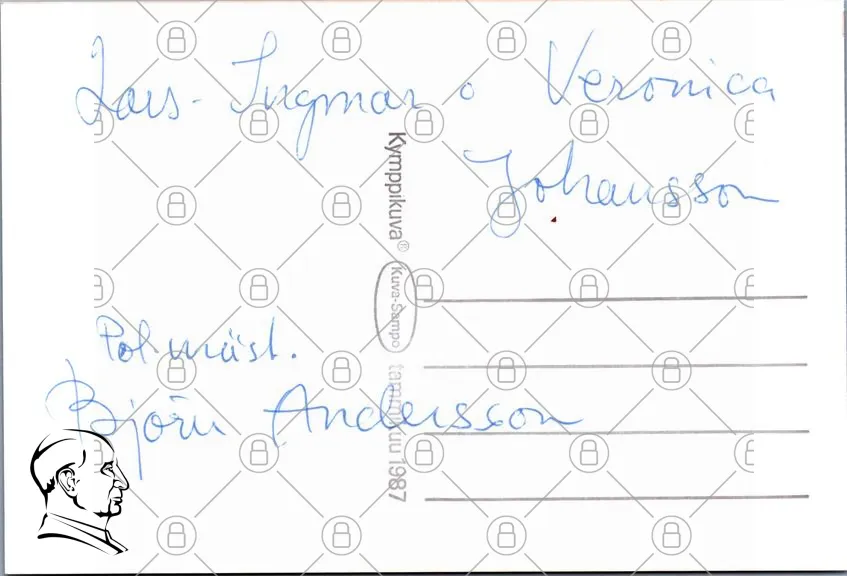 Lars-Ingmar o Veronica
Johansson
Kymppikuva®
Kuva-Sampo
tammikuu 1987
Pol mäst.
Björn Andersson